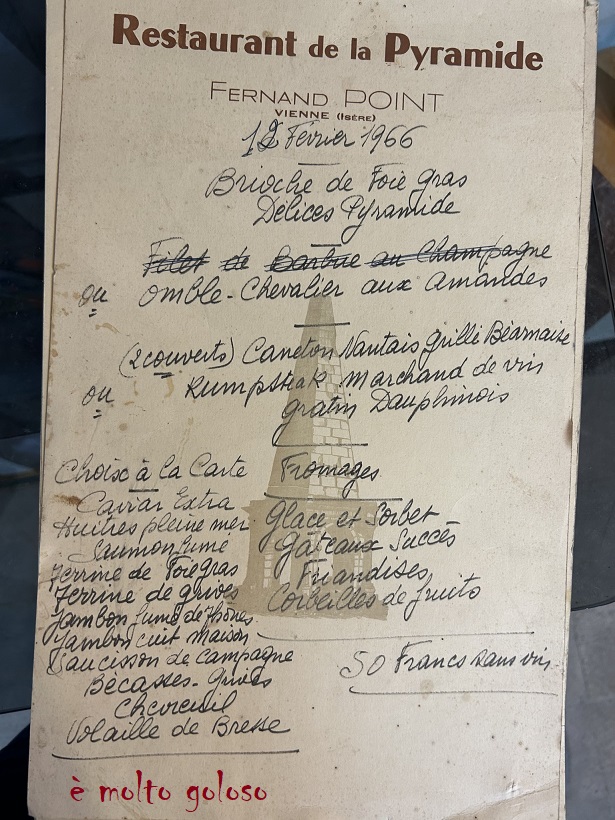 Restaurant de la Pyramide
FERNAND POINT
VIENNE (ISÈRE)
12 Février 1966
Brioche de Foie gras
Délices Pyramide
Filet de Barbue au Champagne
ou Omble-Chevalier aux amandes
(2 couverts) Caneton Nantais grillé Béarnaise
ou Rumpsteak marchand de vin
gratin Dauphinois
Choix à la Carte
Caviar Extra
Huîtres pleine mer
Saumon fumé
Terrine de Foie gras
Terrine de grives
Jambon fumé de Thônes
Jambon cuit maison
Saucisson de campagne
Bécasses - grives
Chevreuil
Volaille de Bresse
Fromages
Glace et Sorbet
Gâteaux Succès
Friandises
Corbeilles de fruits
50 Francs sans vin
è molto goloso